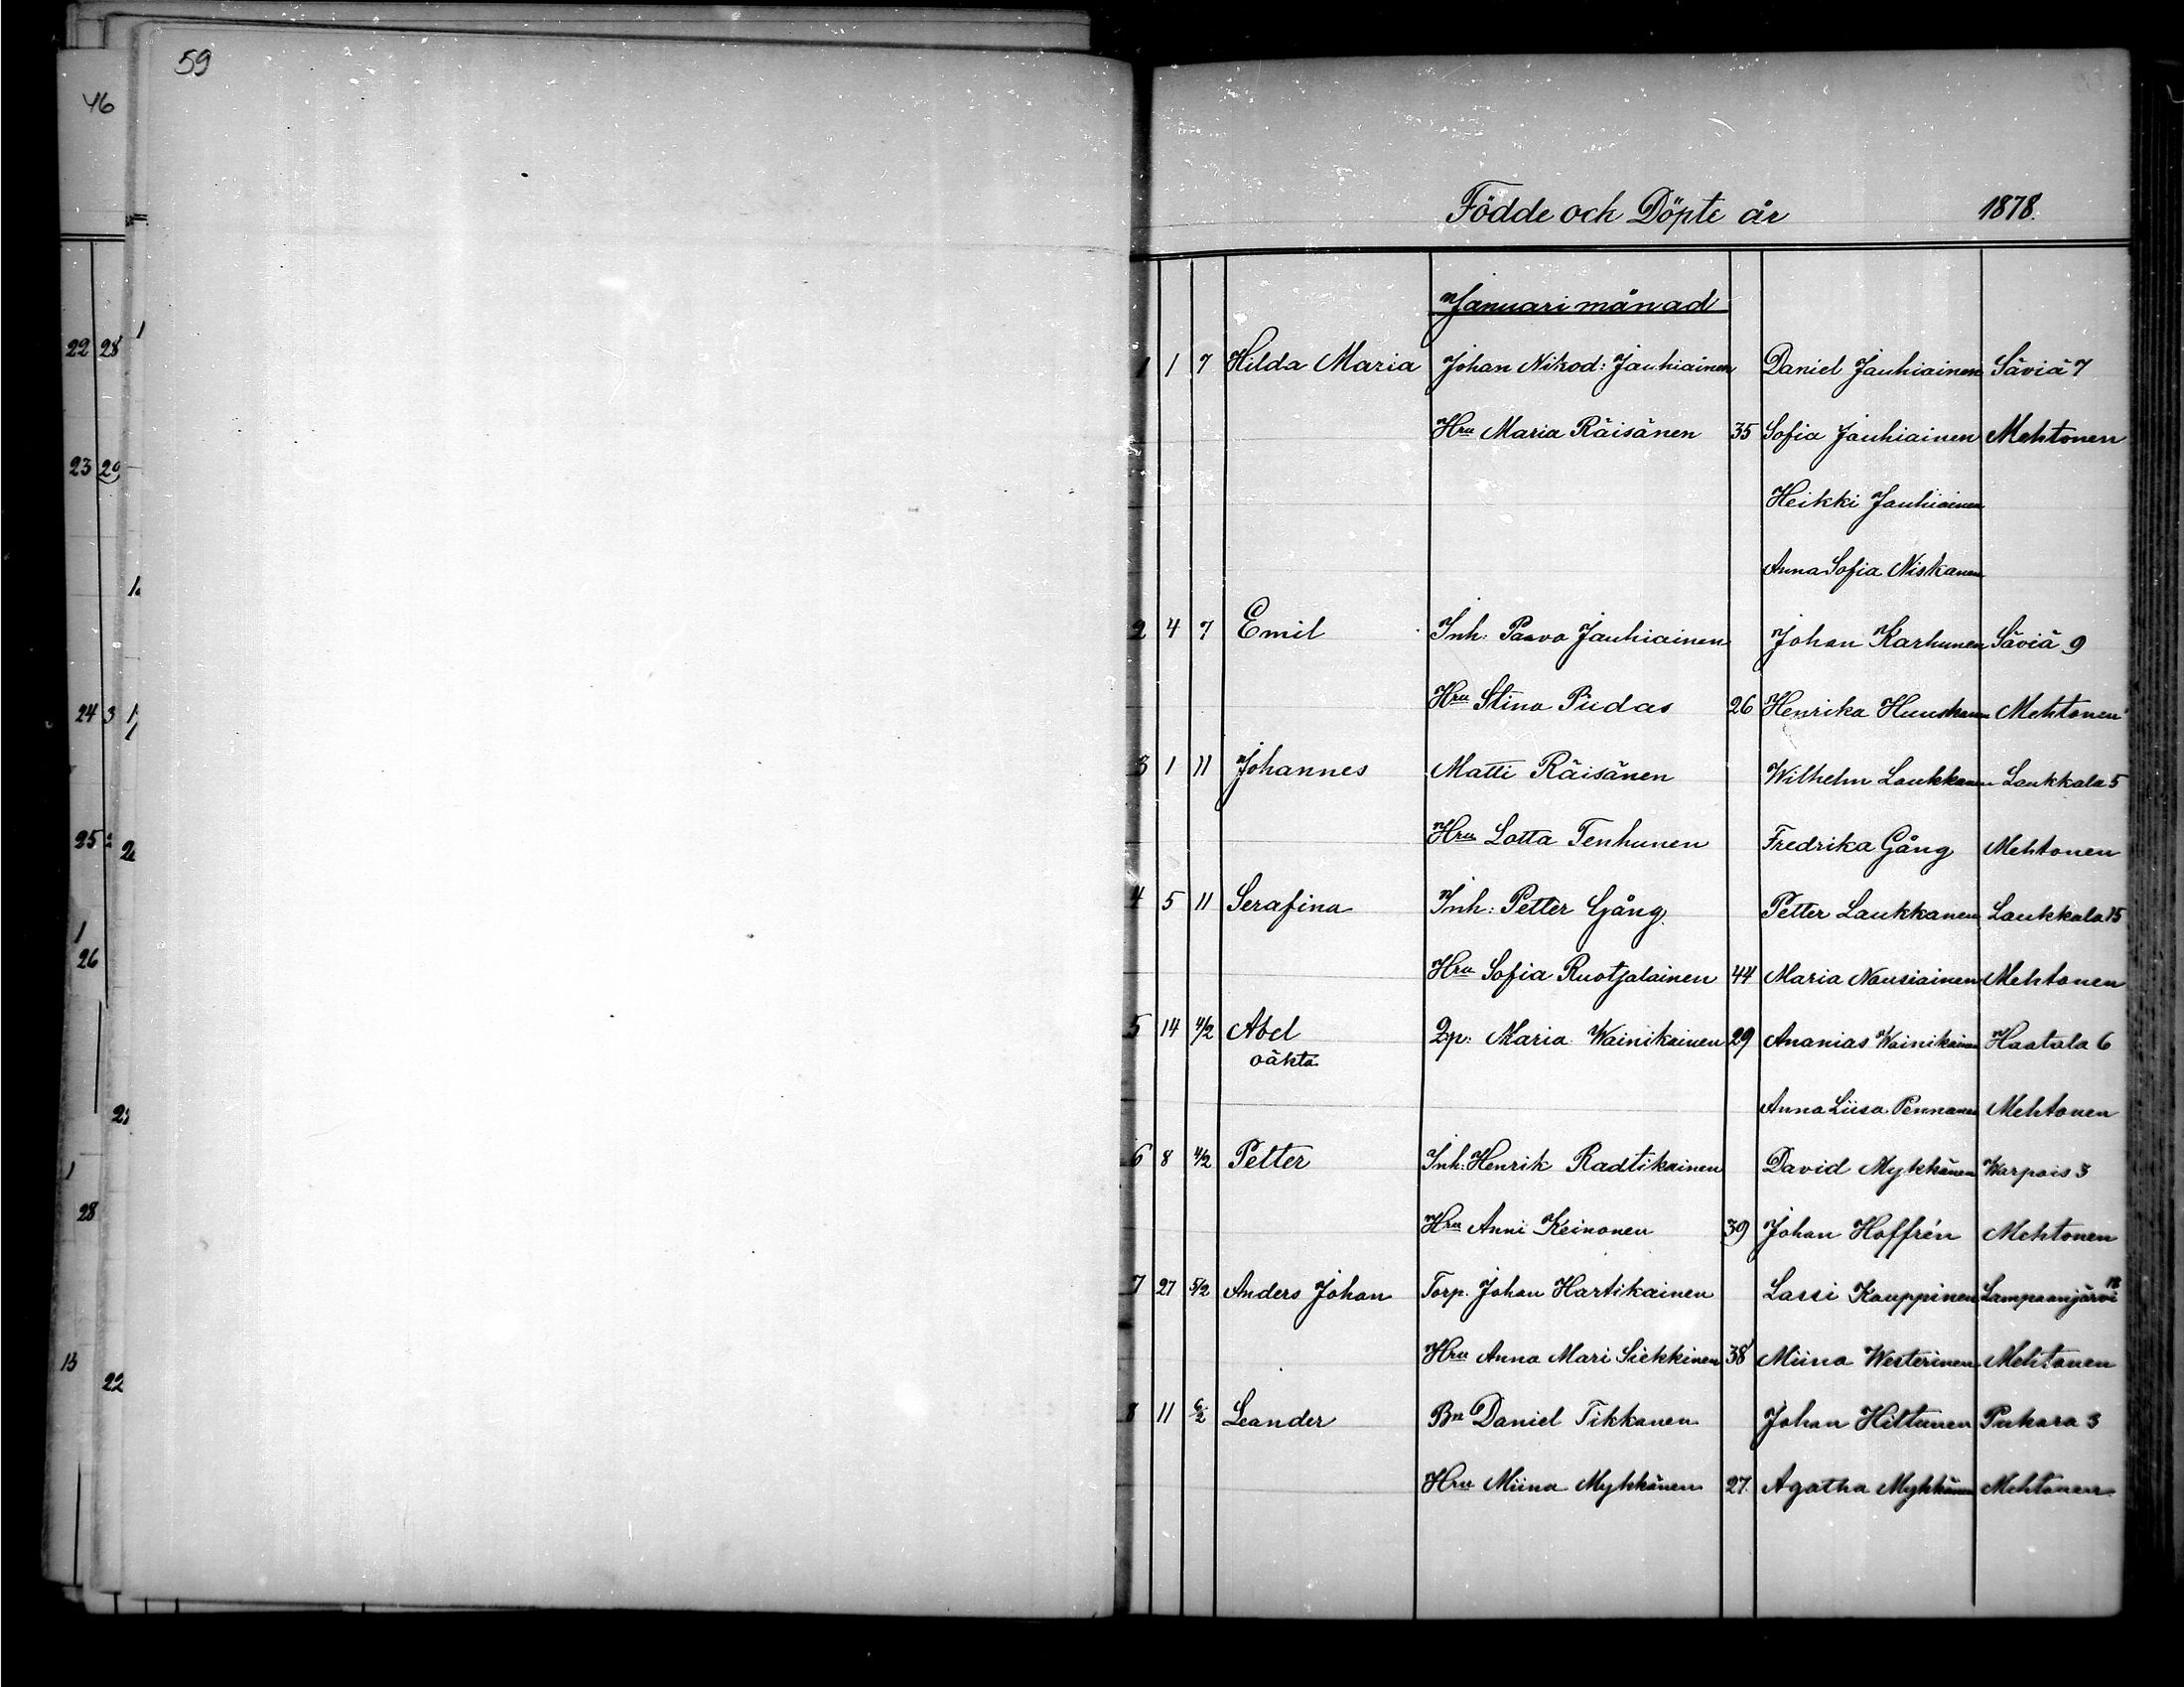 59
46
22 28 1
23 29
24 3
25
1
26
1
28
13
22
Födde och Döpte år 1878.
Januari månad
1 1 7 Hilda Maria Johan Nikod: Jauhiainen Daniel Jauhiainen Säviä 7
Hru Maria Räisänen 35 Sofia Jauhiainen Mehtonen
Heikki Jauhiainen
Anna Sofia Niskanen
2 4 7 Emil Inh: Paavo Jauhiainen Johan Karhunen Säviä 9
Hru Stina Pudas 26 Henrika Huuskonen Mehtonen
3 1 11 Johannes Matti Räisänen Wilhelm Laukkanen Laukkala 5
Hru Lotta Tenhunen Fredrika Gång Mehtonen
4 5 11 Serafina Inh: Petter Gång. Petter Laukkanen Laukkala 15
Hru Sofia Ruotsalainen 44 Maria Nousiainen Mehtonen
5 14 4/2 Abel Qp: Maria Wainikainen 29 Ananias Wainikainen Haatala 6
oäkta
Anna Liisa Pennanen Mehtonen
6 8 4/2 Petter Inh: Henrik Raatikainen David Mykkänen Warpais 3
Hru Anni Keinonen 39 Johan Hoffrén Mehtonen
7 27 5/2 Anders Johan Torp. Johan Hartikainen Lassi Kauppinen Lampaanjärvi 18
Hru Anna Mari Siekkinen 38 Miina Westerinen Mehtonen
8 11 6/2 Leander Bn Daniel Tikkanen Johan Hiltunen Pukara 3
Hru Miina Mykkänen 27. Agatha Mykkänen Mehtonen